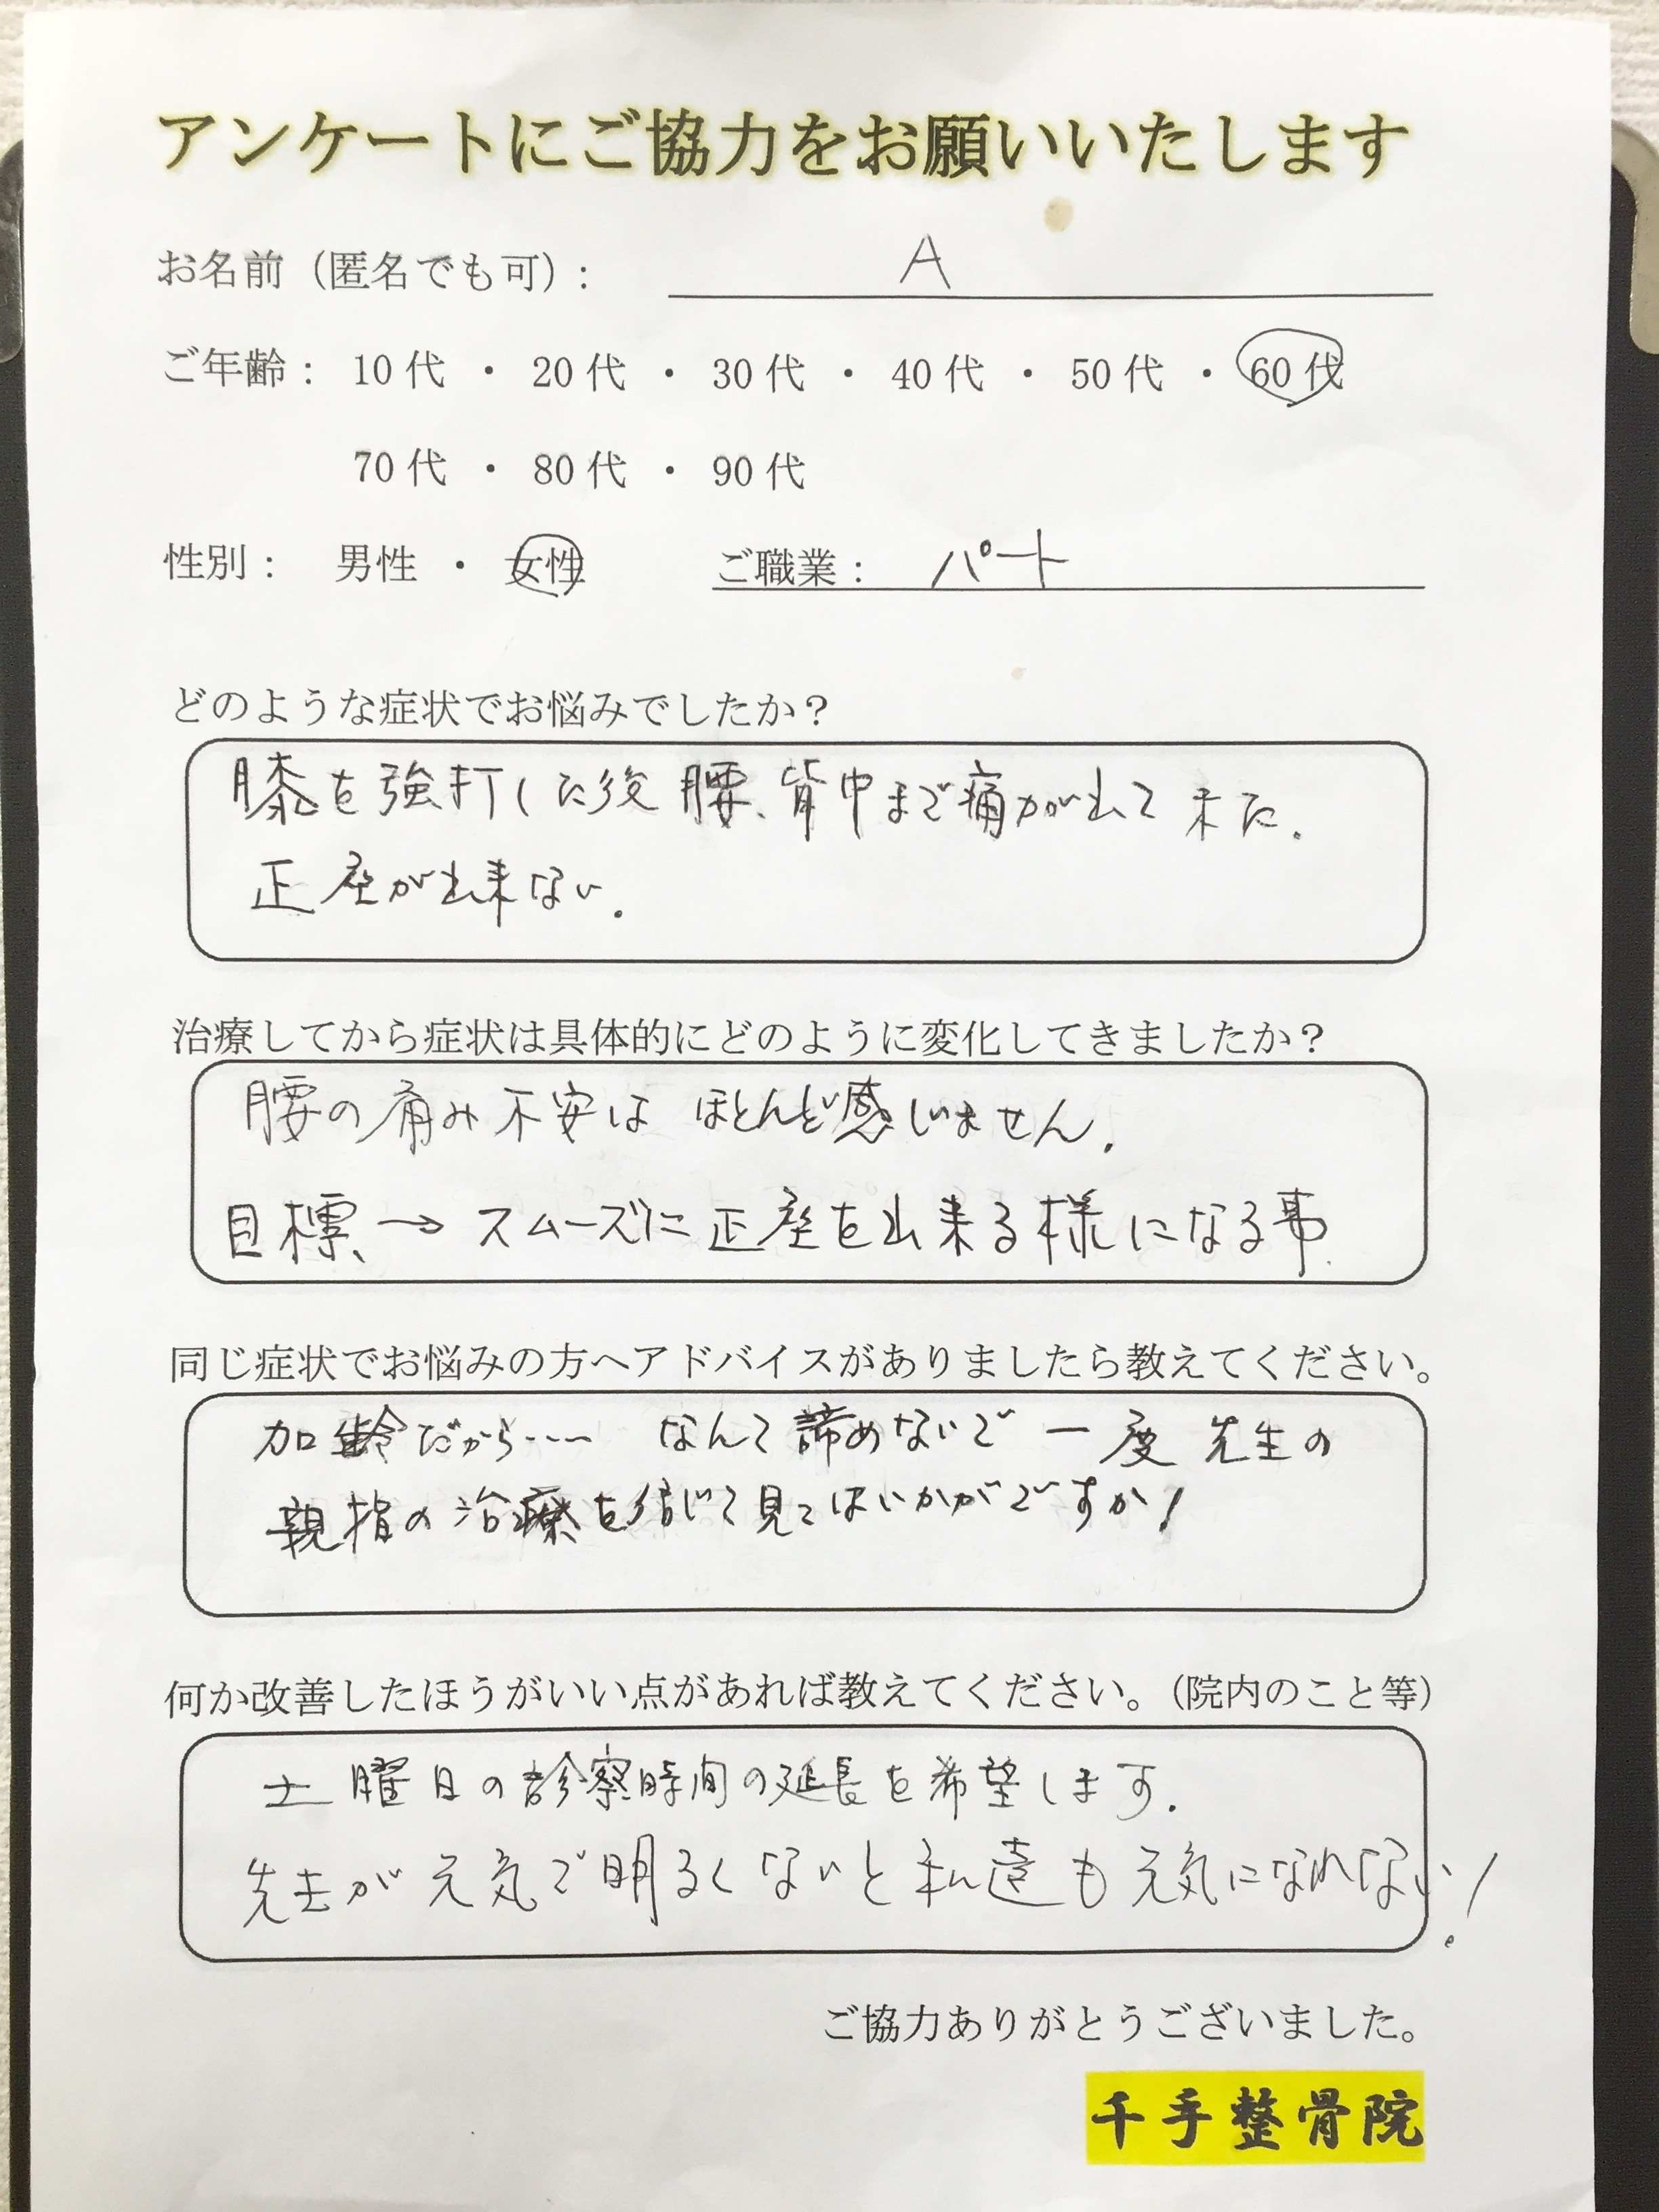 アンケートにご協力をお願いいたします
お名前（匿名でも可）： A
ご年齢： 10代 ・ 20代 ・ 30代 ・ 40代 ・ 50代 ・ 60代
70代 ・ 80代 ・ 90代
性別： 男性 ・ 女性 ご職業： パート
どのような症状でお悩みでしたか？
膝を強打した後 腰、背中まで痛みが出て来た。
正座が出来ない。
治療してから症状は具体的にどのように変化してきましたか？
腰の痛み不安は ほとんど感じません。
目標→スムーズに正座を出来る様になる事
同じ症状でお悩みの方へアドバイスがありましたら教えてください。
加齢だから…… なんて諦めないで 一度 先生の
親指の治療を信じて見てはいかがですか！
何か改善したほうがいい点があれば教えてください。（院内のこと等）
土曜日の診察時間の延長を希望します。
先生が元気で明るくないと私達も元気になれない！
ご協力ありがとうございました。
千手整骨院